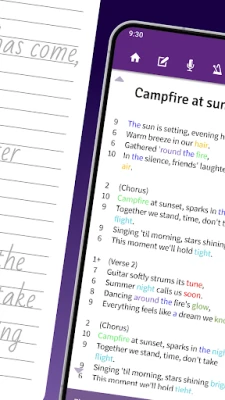 has come,
the
take
9:30
Campfire at sun
9 The sun is setting, evening h
6 Warm breeze in our hair,
6 Gathered 'round the fire,
10 In the silence, friends' laughte
air.
2 (Chorus)
10 Campfire at sunset, sparks in the
9 Together we stand, time, don't t
flight.
9 Singing 'til morning, stars shining
6 This moment we'll hold tight.
1+ (Verse 2)
7 Guitar softly strums its tune,
6 Summer night calls us soon.
8 Dancing around the fire's glow,
9 Everything feels like a dream we kno
2 (Chorus)
10 Campfire at sunset, sparks in the nigh
9 Together we stand, time, don't take
flight.
9 Singing 'til morning, stars shining brig
6 This moment we'll hold tight.